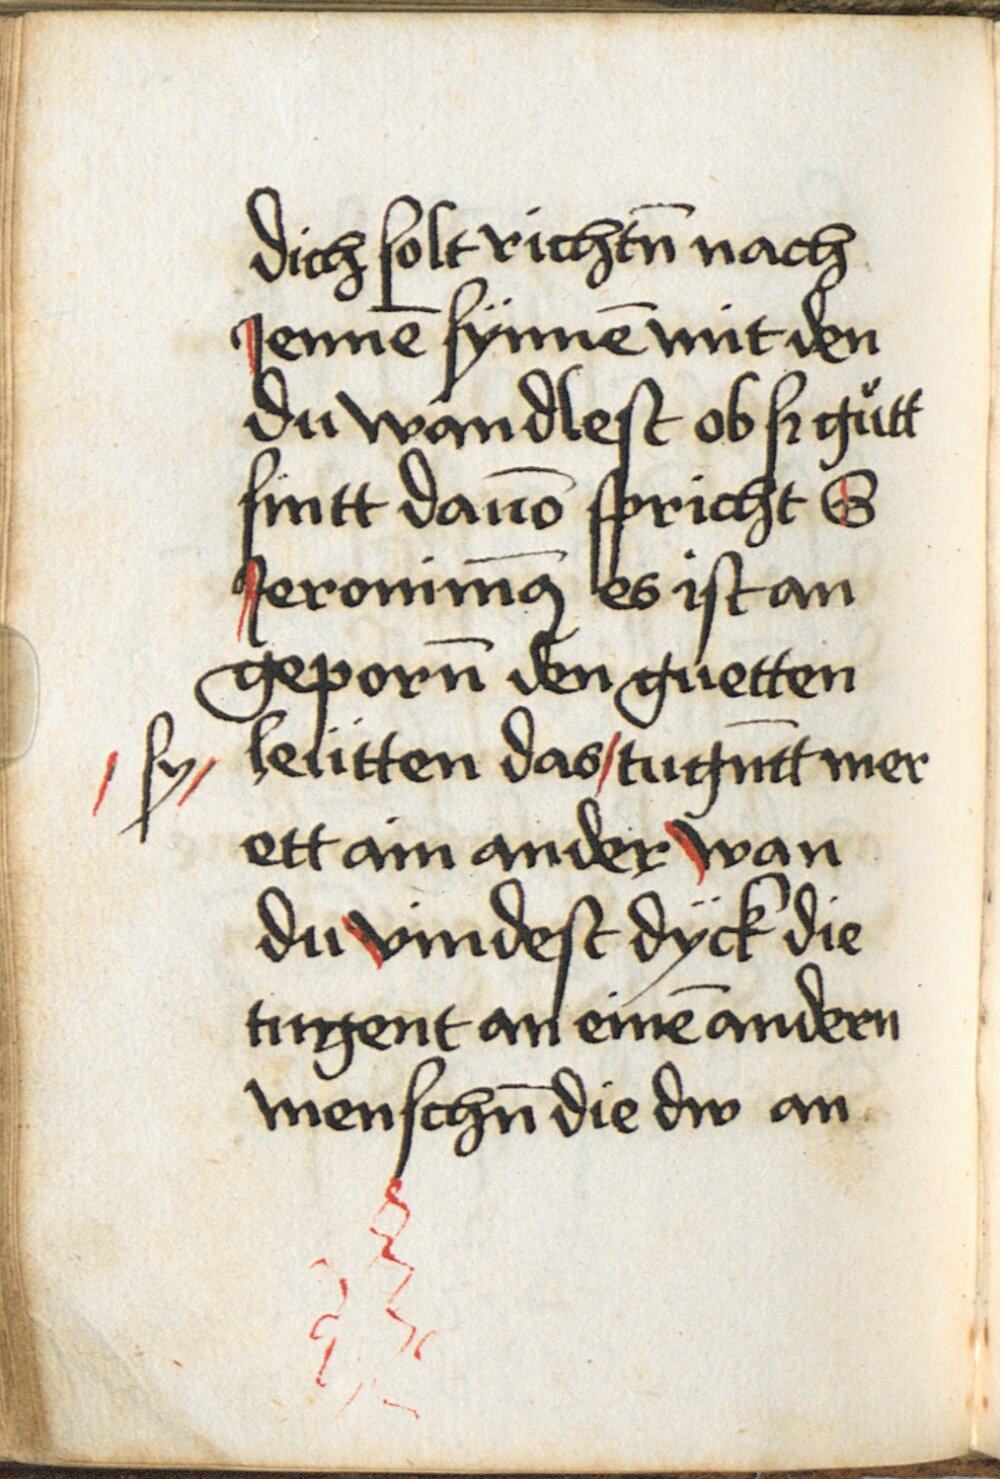 dich solt richtn̄ nach
Jennē sÿnnē mit den
du wandlest ob sy gůtt
sintt dauō spricht S
Jeronim̄9 es ist an
geporn̄ den guetten
sy leütten das / tugn̄tt mer
ett ain ander wan
du vindest dÿck die
tugent an einē andern
menschn̄ die dw an